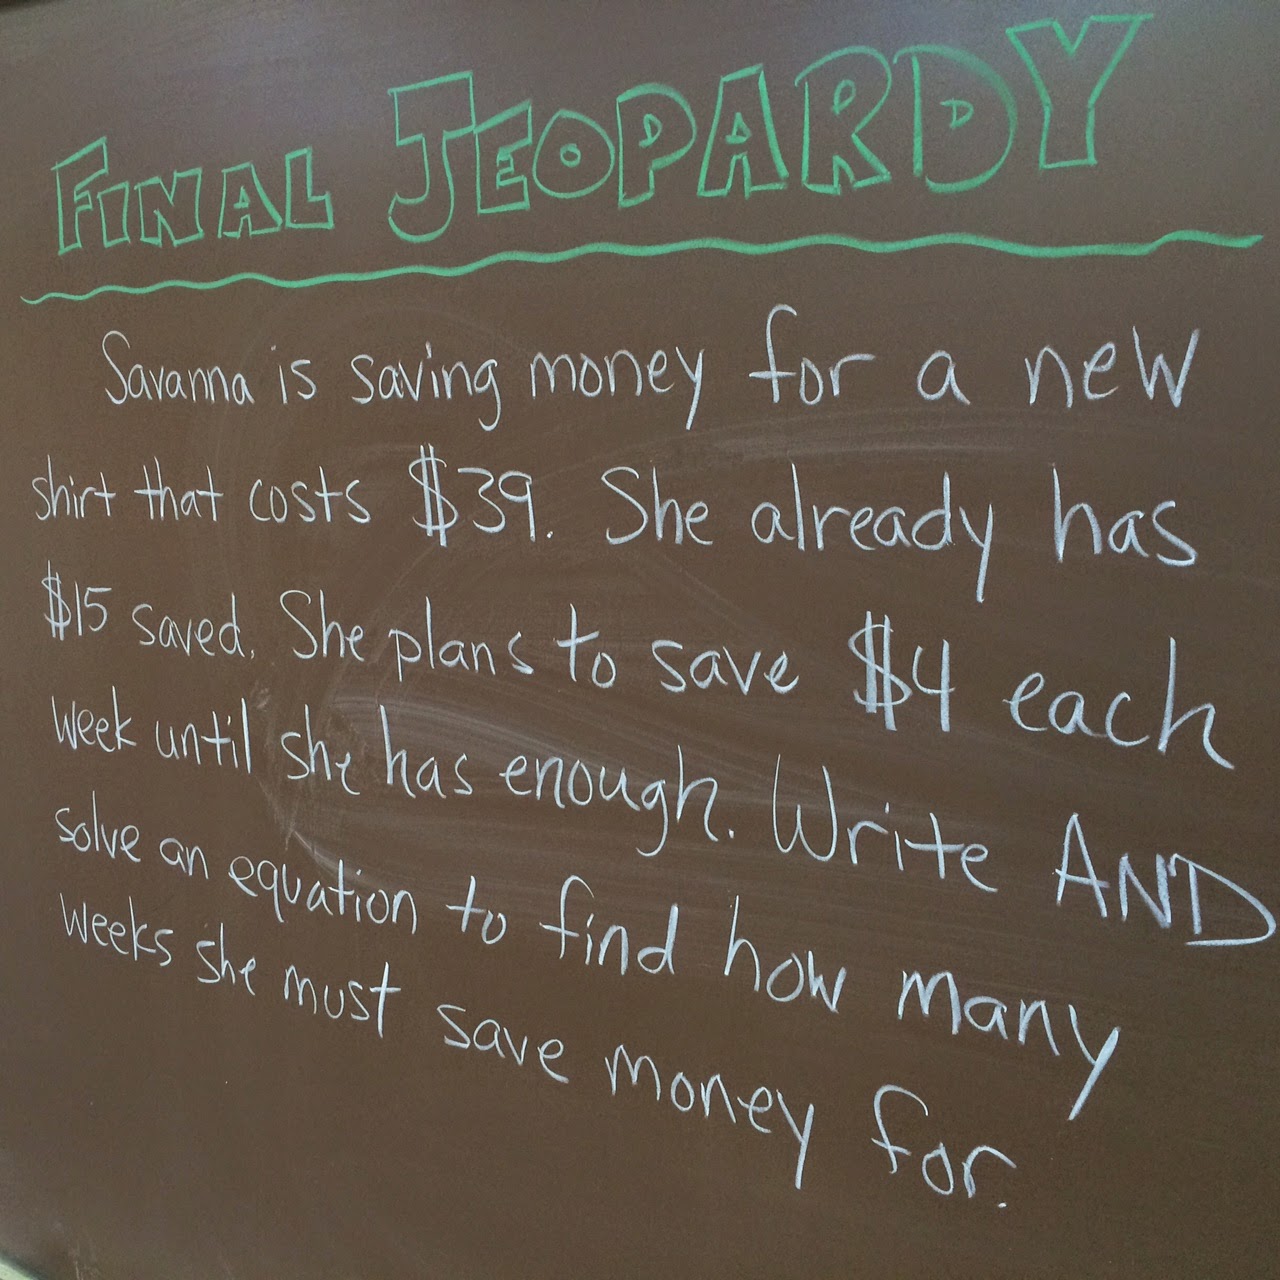 FINAL JEOPARDY
Savanna is saving money for a new
shirt that costs $39. She already has
$15 saved. She plans to save $4 each
week until she has enough. Write AND
solve an equation to find how many
weeks she must save money for.